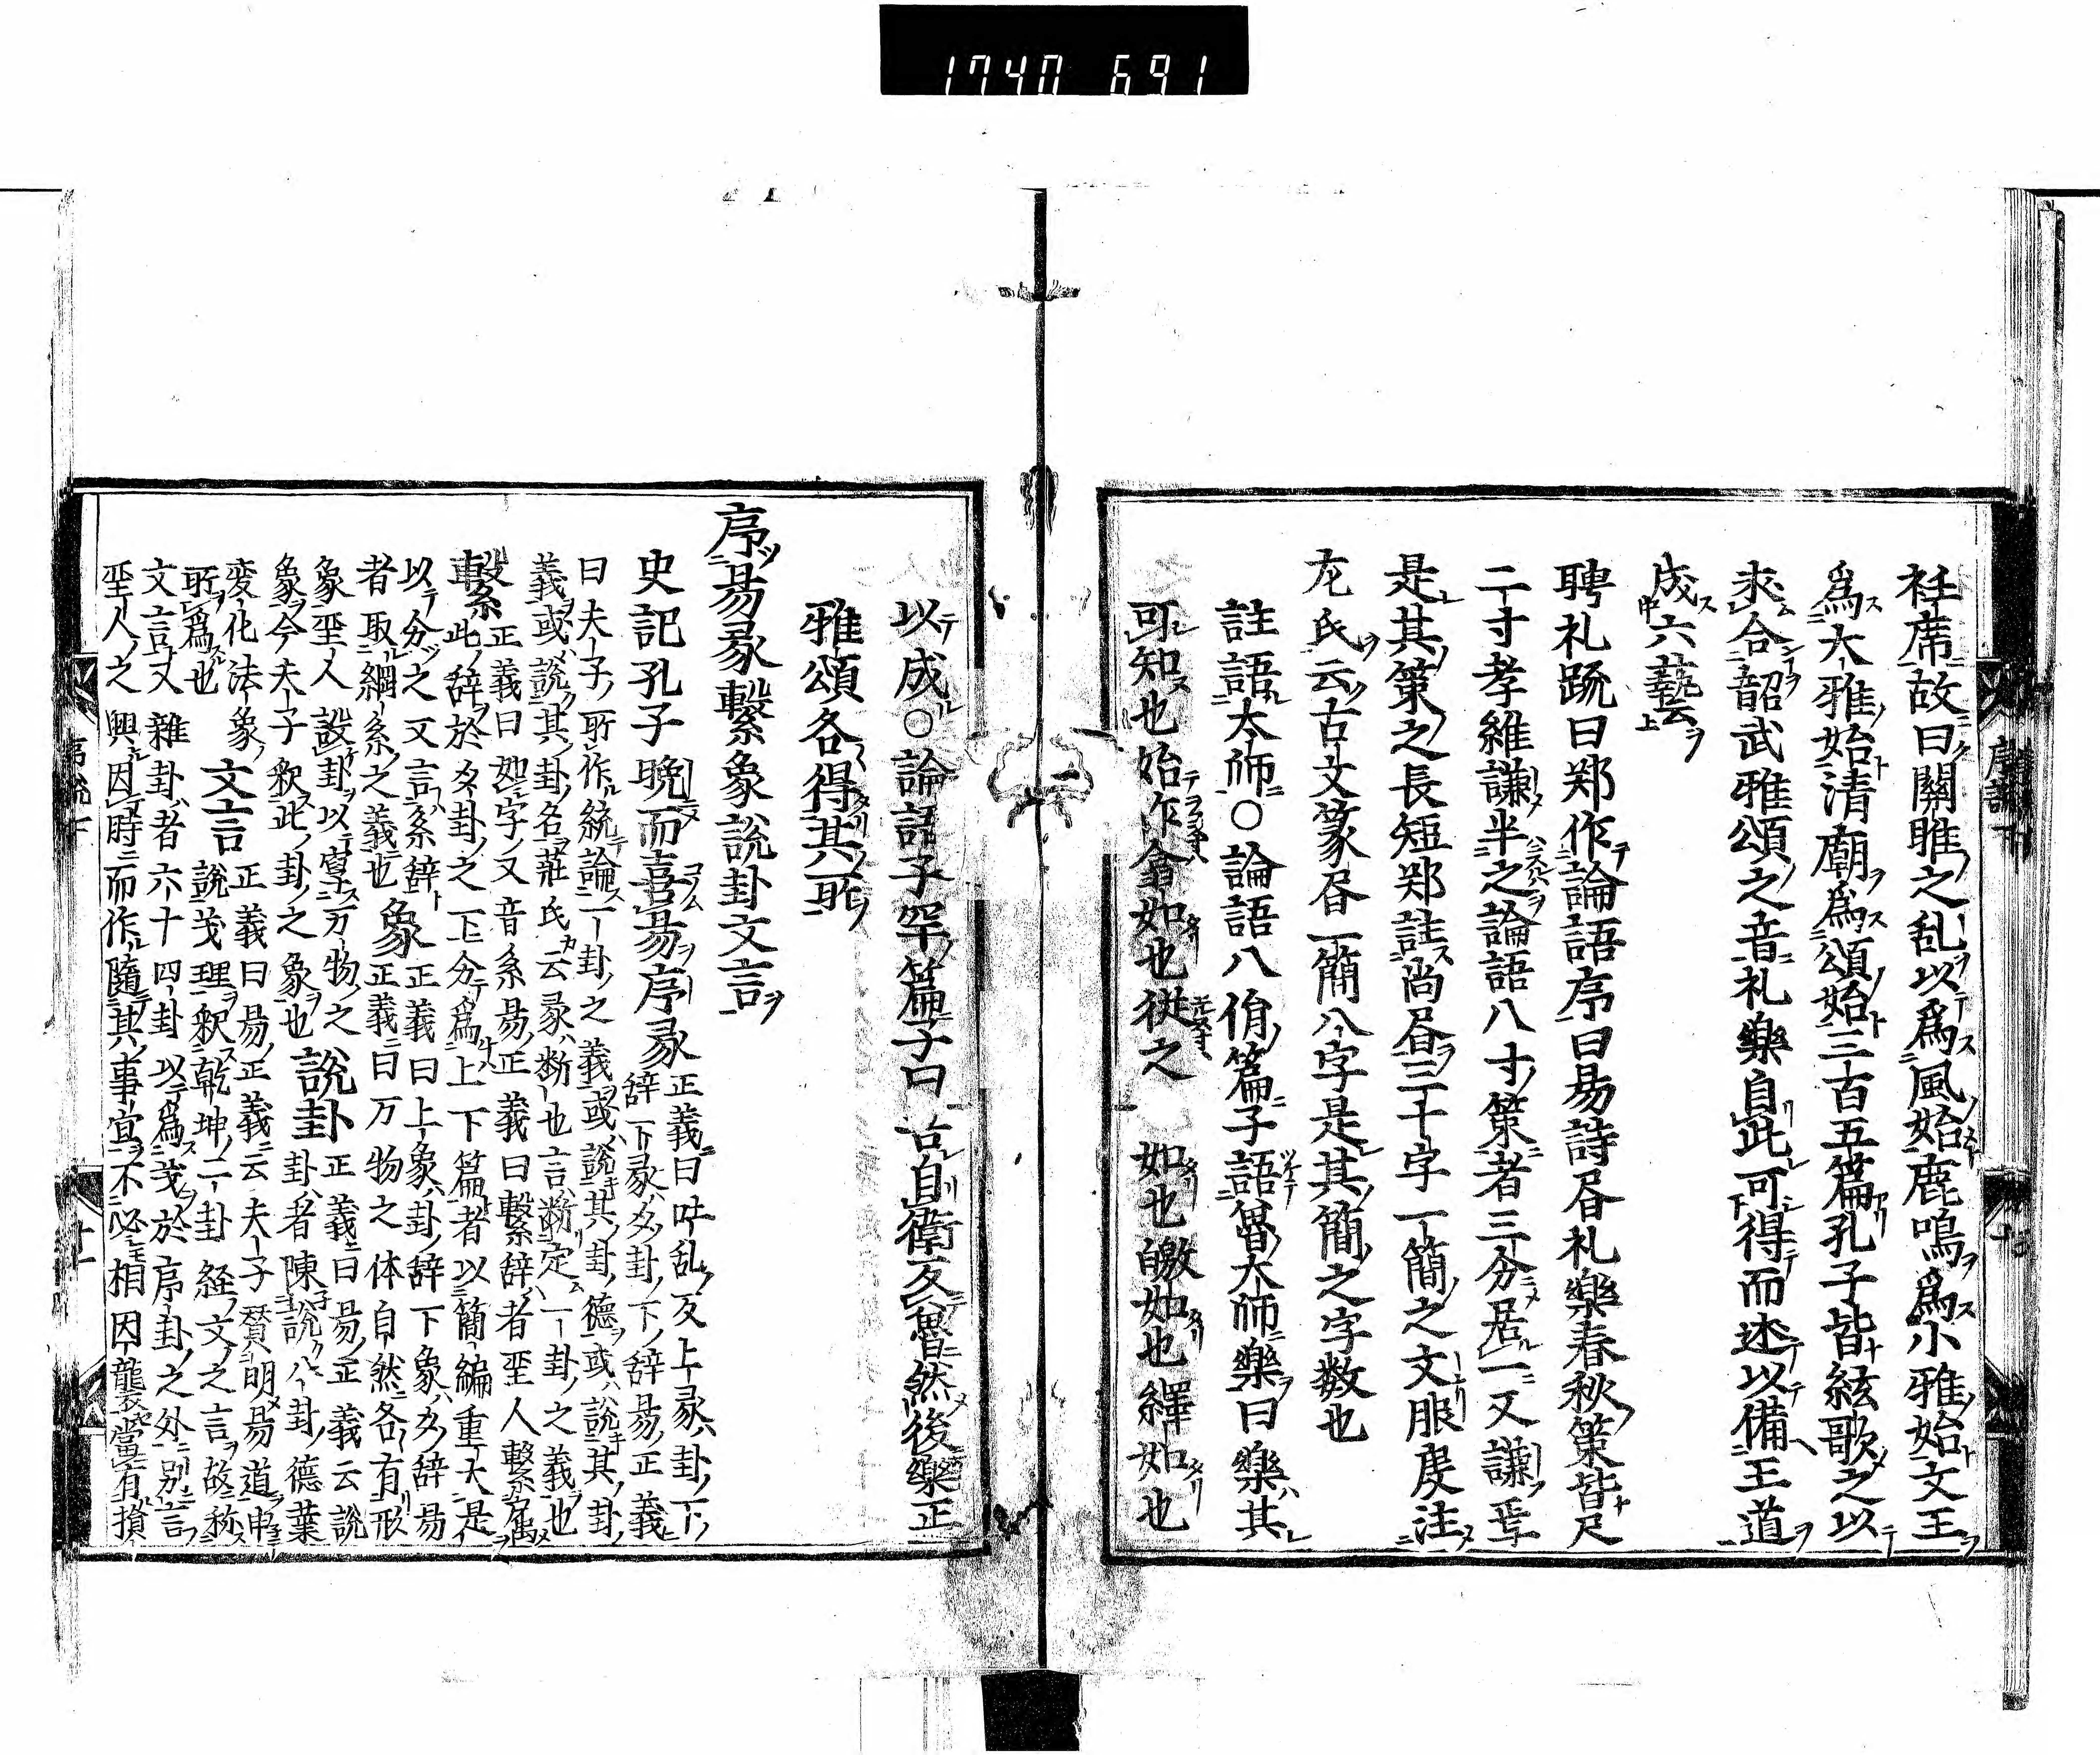 1740 691
衽席故曰關雎之乱以爲風始鹿鳴爲小雅始文王
爲大雅始清廟爲頌始三百五篇孔子皆絃歌之以
求合韶武雅頌之音礼樂自此可得而述以備王道
成六藝云
聘礼疏曰郑作論語序曰易詩昏礼樂春秋策皆尺
二寸孝維謙半之論語八寸策者三分居一又謙焉
是其策之長短郑註尚昏三十字一簡之文服虔注
左氏云古文篆昏一簡八字是其簡之字数也
註語太师〇論語八佾篇子語魯大师樂曰樂其
可知也始作翕如也從之 如也皦如也繹如也
以成〇論語子罕篇子曰 自衛反魯然後樂正
雅頌各得其所
序易彖繫象說卦文言
史記孔子晩而喜易序彖正義曰 乱反上彖卦下
辞下彖爻卦下辞易正義
曰夫子所作統論一卦之義或說其卦德或說其卦
義或說其卦名莊氏云彖断也言断定一卦之義也
繫正義曰如字又音系易正義曰繫辞者聖人繫属
此辞於爻卦之下分爲上下篇者以簡編重大是
以分之又言系辞正義曰上象卦辞下象爻辞易
者取綱系之義也象正義曰万物之体自然各有形
象聖人設卦以寫万物之說卦正義曰易正義云說
象今夫子釈此卦之象也卦者陳說八卦德葉
変化法象文言正義曰易正義云夫子贊明易道申
所爲也說茂理釈乾坤二卦経文之言故称
文言又雜卦者六十四卦以爲茂於序卦之外別言
聖人之興因時而作隨其事宜不必相因襲當有損